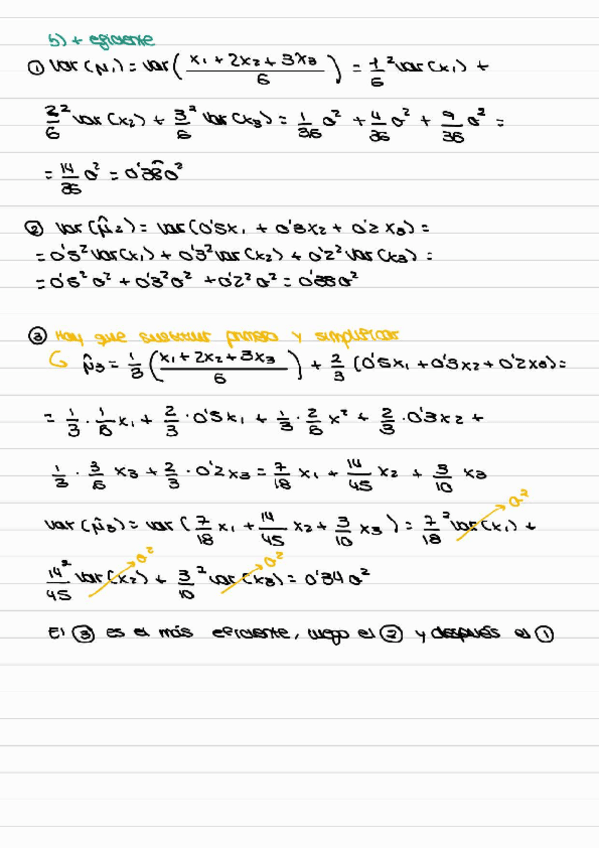 b) + eficiente
① var(μ̂₁) = var( (x₁ + 2x₂ + 3x₃)/6 ) = 1/6² var(x₁) +
2/6² var(x₂) + 3/6² var(x₃) = 1/36 σ² + 4/36 σ² + 9/36 σ² =
= 14/36 σ² = 0'38̂σ²
② var(μ̂₂) = var(0'5x₁ + 0'3x₂ + 0'2x₃) =
= 0'5² var(x₁) + 0'3² var(x₂) + 0'2² var(x₃) =
= 0'5² σ² + 0'3² σ² + 0'2² σ² = 0'38σ²
③ Hay que sustituir primero y simplificar
μ̂₃ = 1/3 ( (x₁ + 2x₂ + 3x₃)/6 ) + 2/3 (0'5x₁ + 0'3x₂ + 0'2x₃) =
= 1/3 · 1/6 x₁ + 2/3 · 0'5x₁ + 1/3 · 2/6 x² + 2/3 · 0'3x₂ +
1/3 · 3/6 x₃ + 2/3 · 0'2x₃ = 7/18 x₁ + 14/45 x₂ + 3/10 x₃
var(μ̂₃) = var( 7/18 x₁ + 14/45 x₂ + 3/10 x₃ ) = 7/18² var(x₁) + σ²
14²/45 var(x₂) σ² + 3/10² var(x₃) σ² = 0'34σ²
El ③ es el más eficiente, luego el ② y después el ①